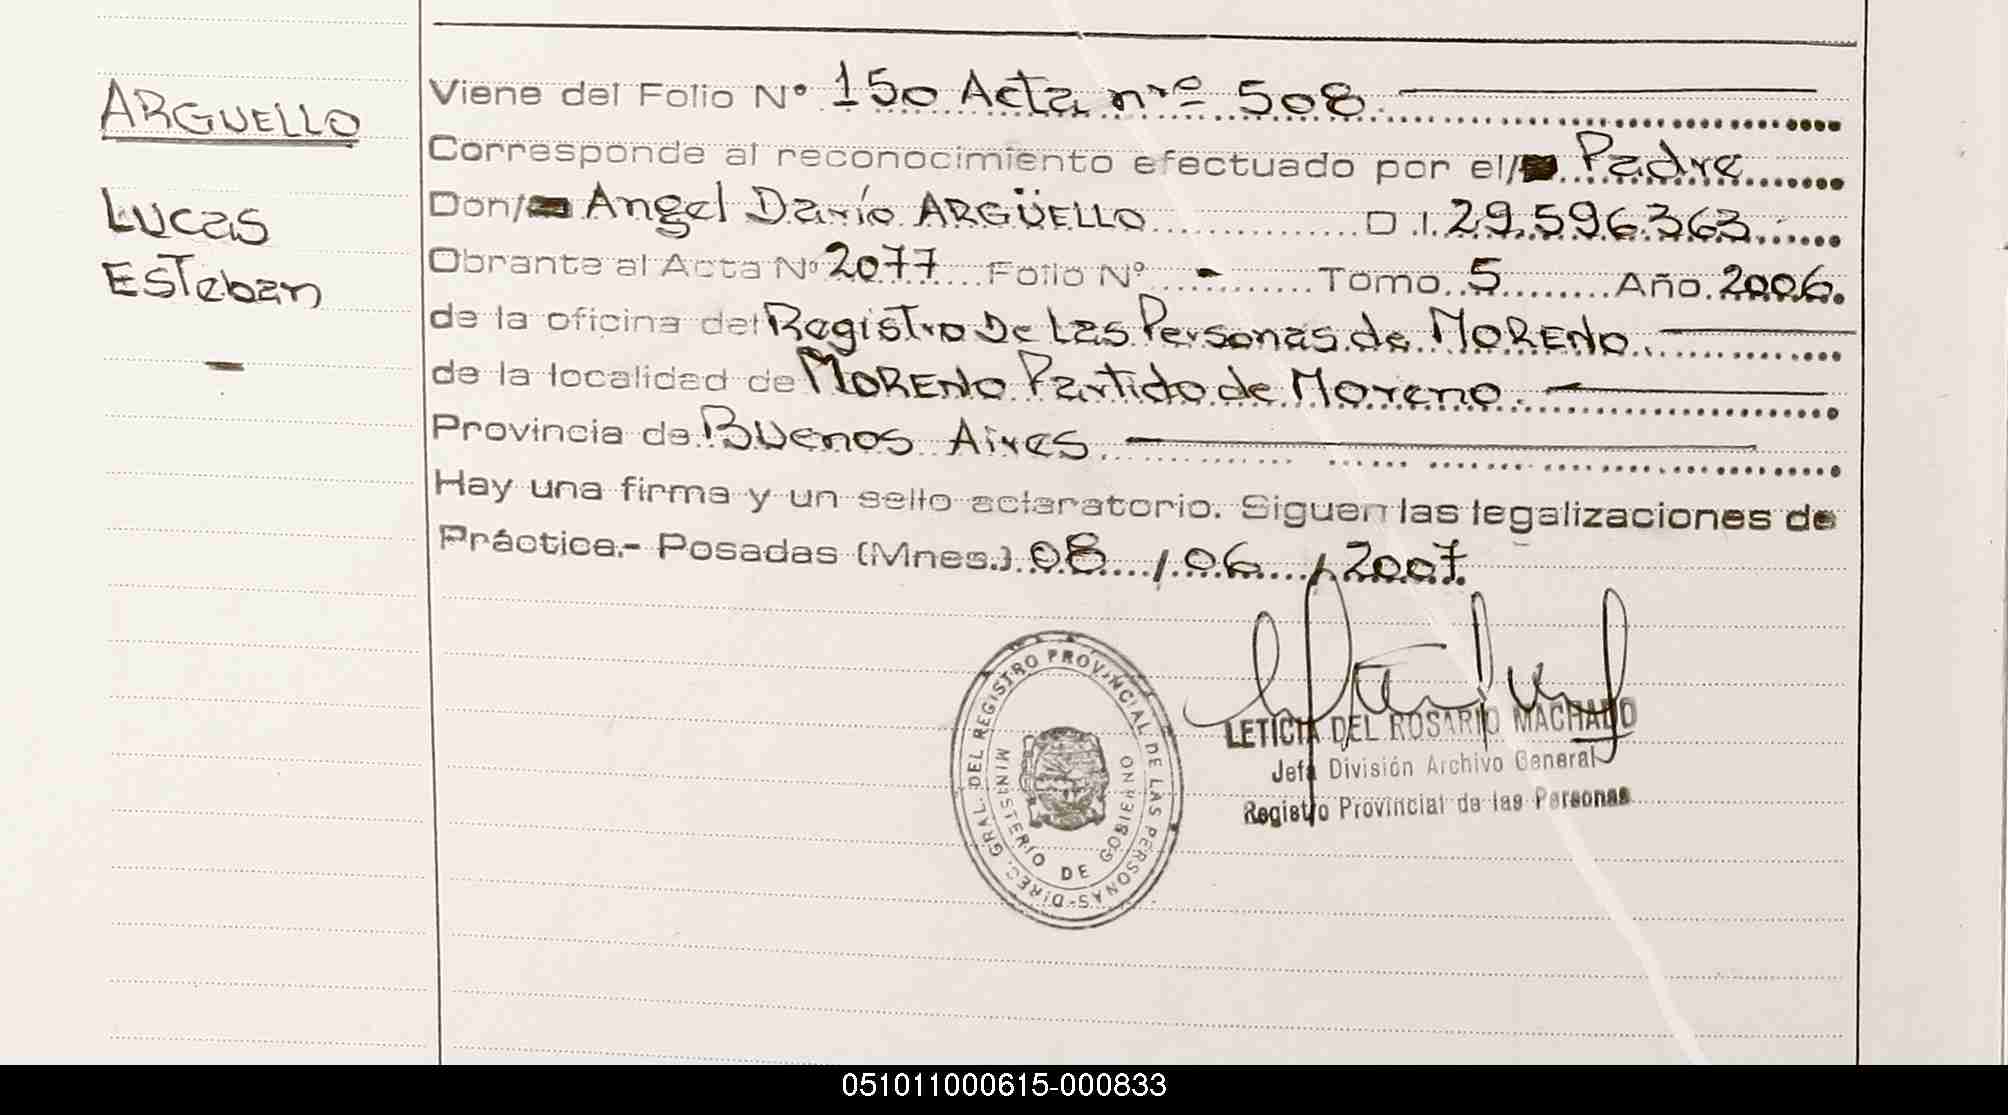 ARGUELLO
LUCAS
ESTEBAN
Viene del Folio Nº 150 Acta nrº 508.
Corresponde al reconocimiento efectuado por el/ Padre
Don/ Angel Darío ARGÜELLO D.I. 29.596.363
Obrante al Acta Nº 2077 Folio Nº - Tomo 5 Año 2006.
de la oficina del Registro De Las Personas de MORENO
de la localidad de MORENO Partido de Moreno.
Provincia de Buenos Aires
Hay una firma y un sello aclaratorio. Siguen las legalizaciones de
Práctica.- Posadas (Mnes.) 08 / 06 / 2007.
DIREC. GRAL. DEL REGISTRO PROVINCIAL DE LAS PERSONAS-
MINISTERIO DE GOBIERNO
LETICIA DEL ROSARIO MACHADO
Jefa División Archivo General
Registro Provincial de las Personas
051011000615-000833